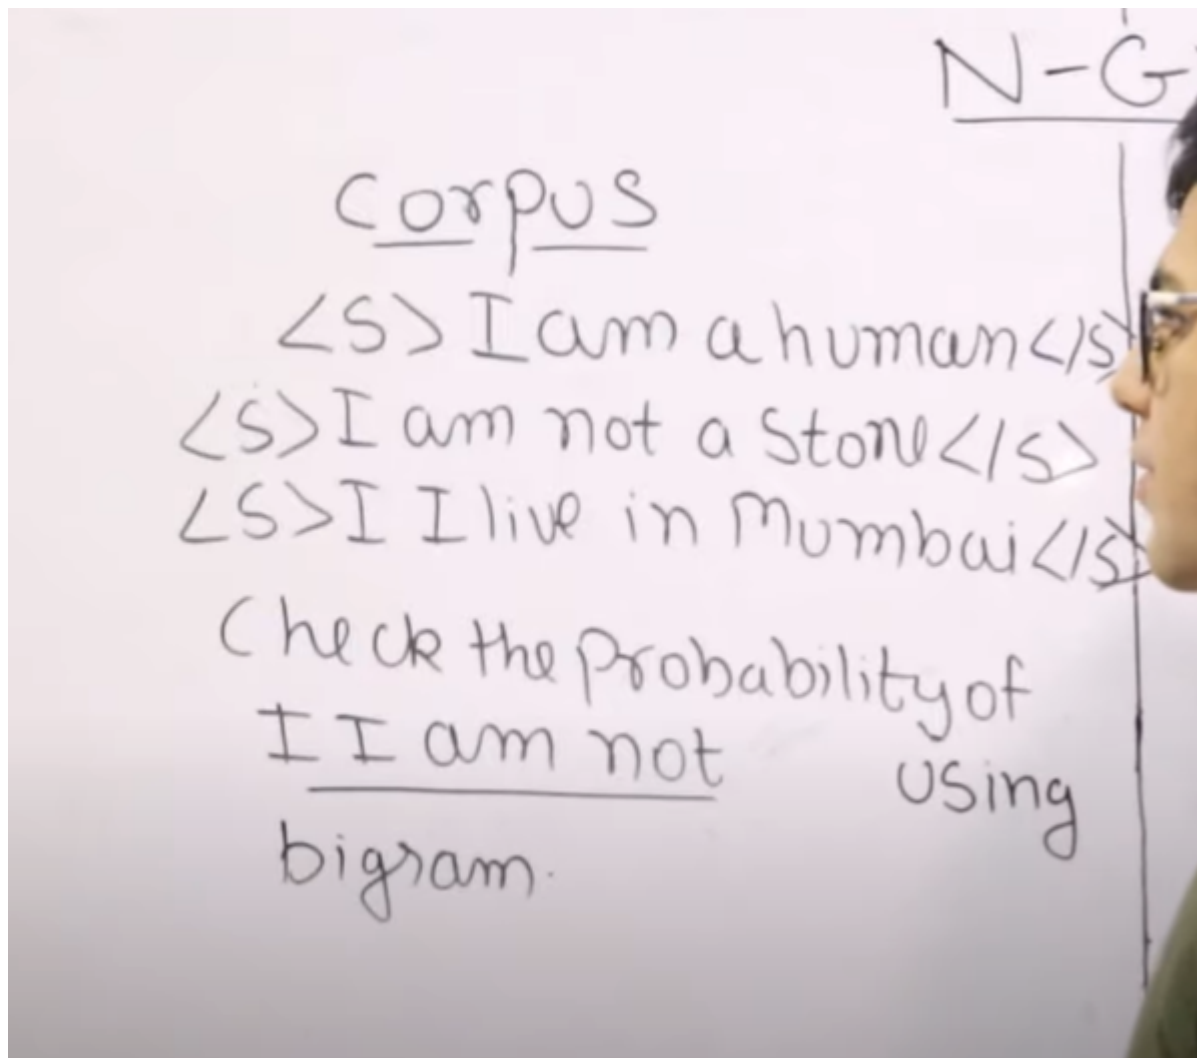 N-G
Corpus
<S> I am a human </S>
<S> I am not a Stone </S>
<S> I I live in Mumbai </S>
Check the Probability of
I I am not using
bigram.